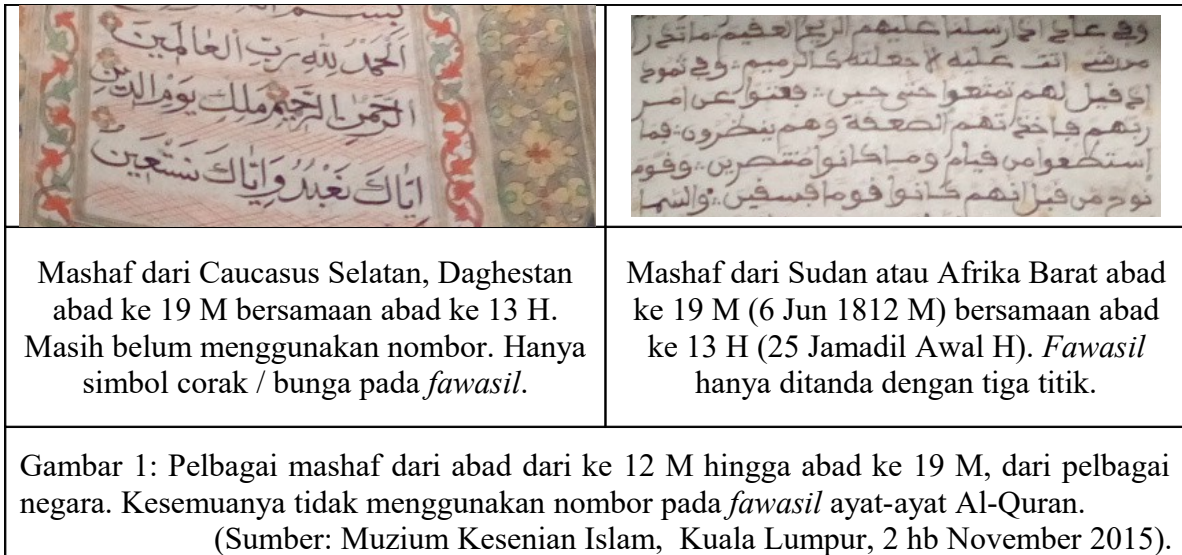 بسم
اَلْحَمْدُ لِلّٰهِ رَبِّ الْعَالَمِينَ
الرَّحْمٰنِ الرَّحِيمِ مَلِكِ يَوْمِ الدِّينِ
اِيَّاكَ نَعْبُدُ وَاِيَّاكَ نَسْتَعِينُ
وفي عاد اذ ارسلنا عليهم الريح العقيم ما تذر
من شيء اتت عليه الا جعلته كالرميم وفي ثمود
اذ قيل لهم تمتعوا حتى حين فعتوا عن امر
ربهم فاخذتهم الصعقة وهم ينظرون فما
استطعوا من قيام وما كانوا منتصرين وقوم
نوح من قبل انهم كانوا قوما فسقين والسما
Mashaf dari Caucasus Selatan, Daghestan
abad ke 19 M bersamaan abad ke 13 H.
Masih belum menggunakan nombor. Hanya
simbol corak / bunga pada fawasil.
Mashaf dari Sudan atau Afrika Barat abad
ke 19 M (6 Jun 1812 M) bersamaan abad
ke 13 H (25 Jamadil Awal H). Fawasil
hanya ditanda dengan tiga titik.
Gambar 1: Pelbagai mashaf dari abad dari ke 12 M hingga abad ke 19 M, dari pelbagai
negara. Kesemuanya tidak menggunakan nombor pada fawasil ayat-ayat Al-Quran.
(Sumber: Muzium Kesenian Islam, Kuala Lumpur, 2 hb November 2015).